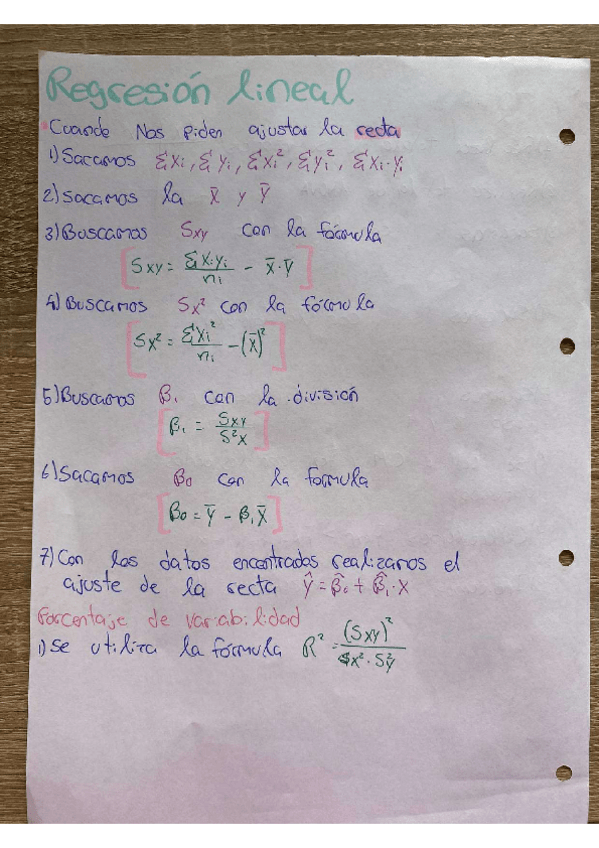 Regresión lineal
• Cuando Nos piden ajustar la recta
1) Sacamos Σxi, Σyi, Σxi², Σyi², Σxi·yi
2) Sacamos la x̄ y ȳ
3) Buscamos Sxy con la fórmula
[Sxy = Σxi·yi / ni - x̄·ȳ]
4) Buscamos Sx² con la fórmula
[Sx² = Σxi² / ni - (x̄)²]
5) Buscamos β₁ con la división
[β₁ = Sxy / S²x]
6) Sacamos β₀ con la formula
[β₀ = ȳ - β₁x̄]
7) Con los datos encontrados realizamos el
ajuste de la recta ŷ = β̂₀ + β̂₁·x
Porcentaje de variabilidad
1) Se utiliza la fórmula R² = (Sxy)² / Sx²·S²y